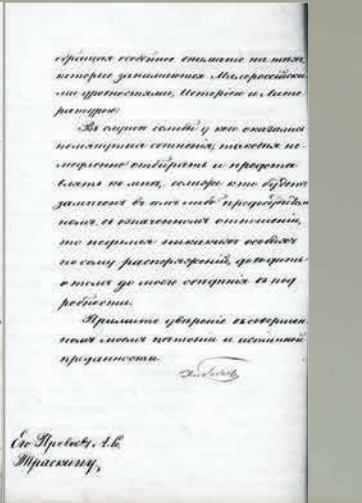 обращая особенное внимание на тѣхъ,
которые занимаются Малороссійски-
ми древностями, Исторіею и Лите-
ратурою.
Въ случаѣ еслибы у кого оказались
помянутыя сочиненія, таковыя не-
медленно отбирать и предста-
влять ко мнѣ, если же кто будетъ
замѣченъ въ чемъ либо предосудитель-
номъ, въ означенномъ отношеніи,
то недѣлая никакихъ особыхъ
по сему распоряженій, доводить
о томъ до моего свѣдѣнія въ под
робности.
Примите увѣреніе въ совершен-
номъ моемъ почтеніи и истинной
преданности.
Его Превосх. А. С.
Траскину,